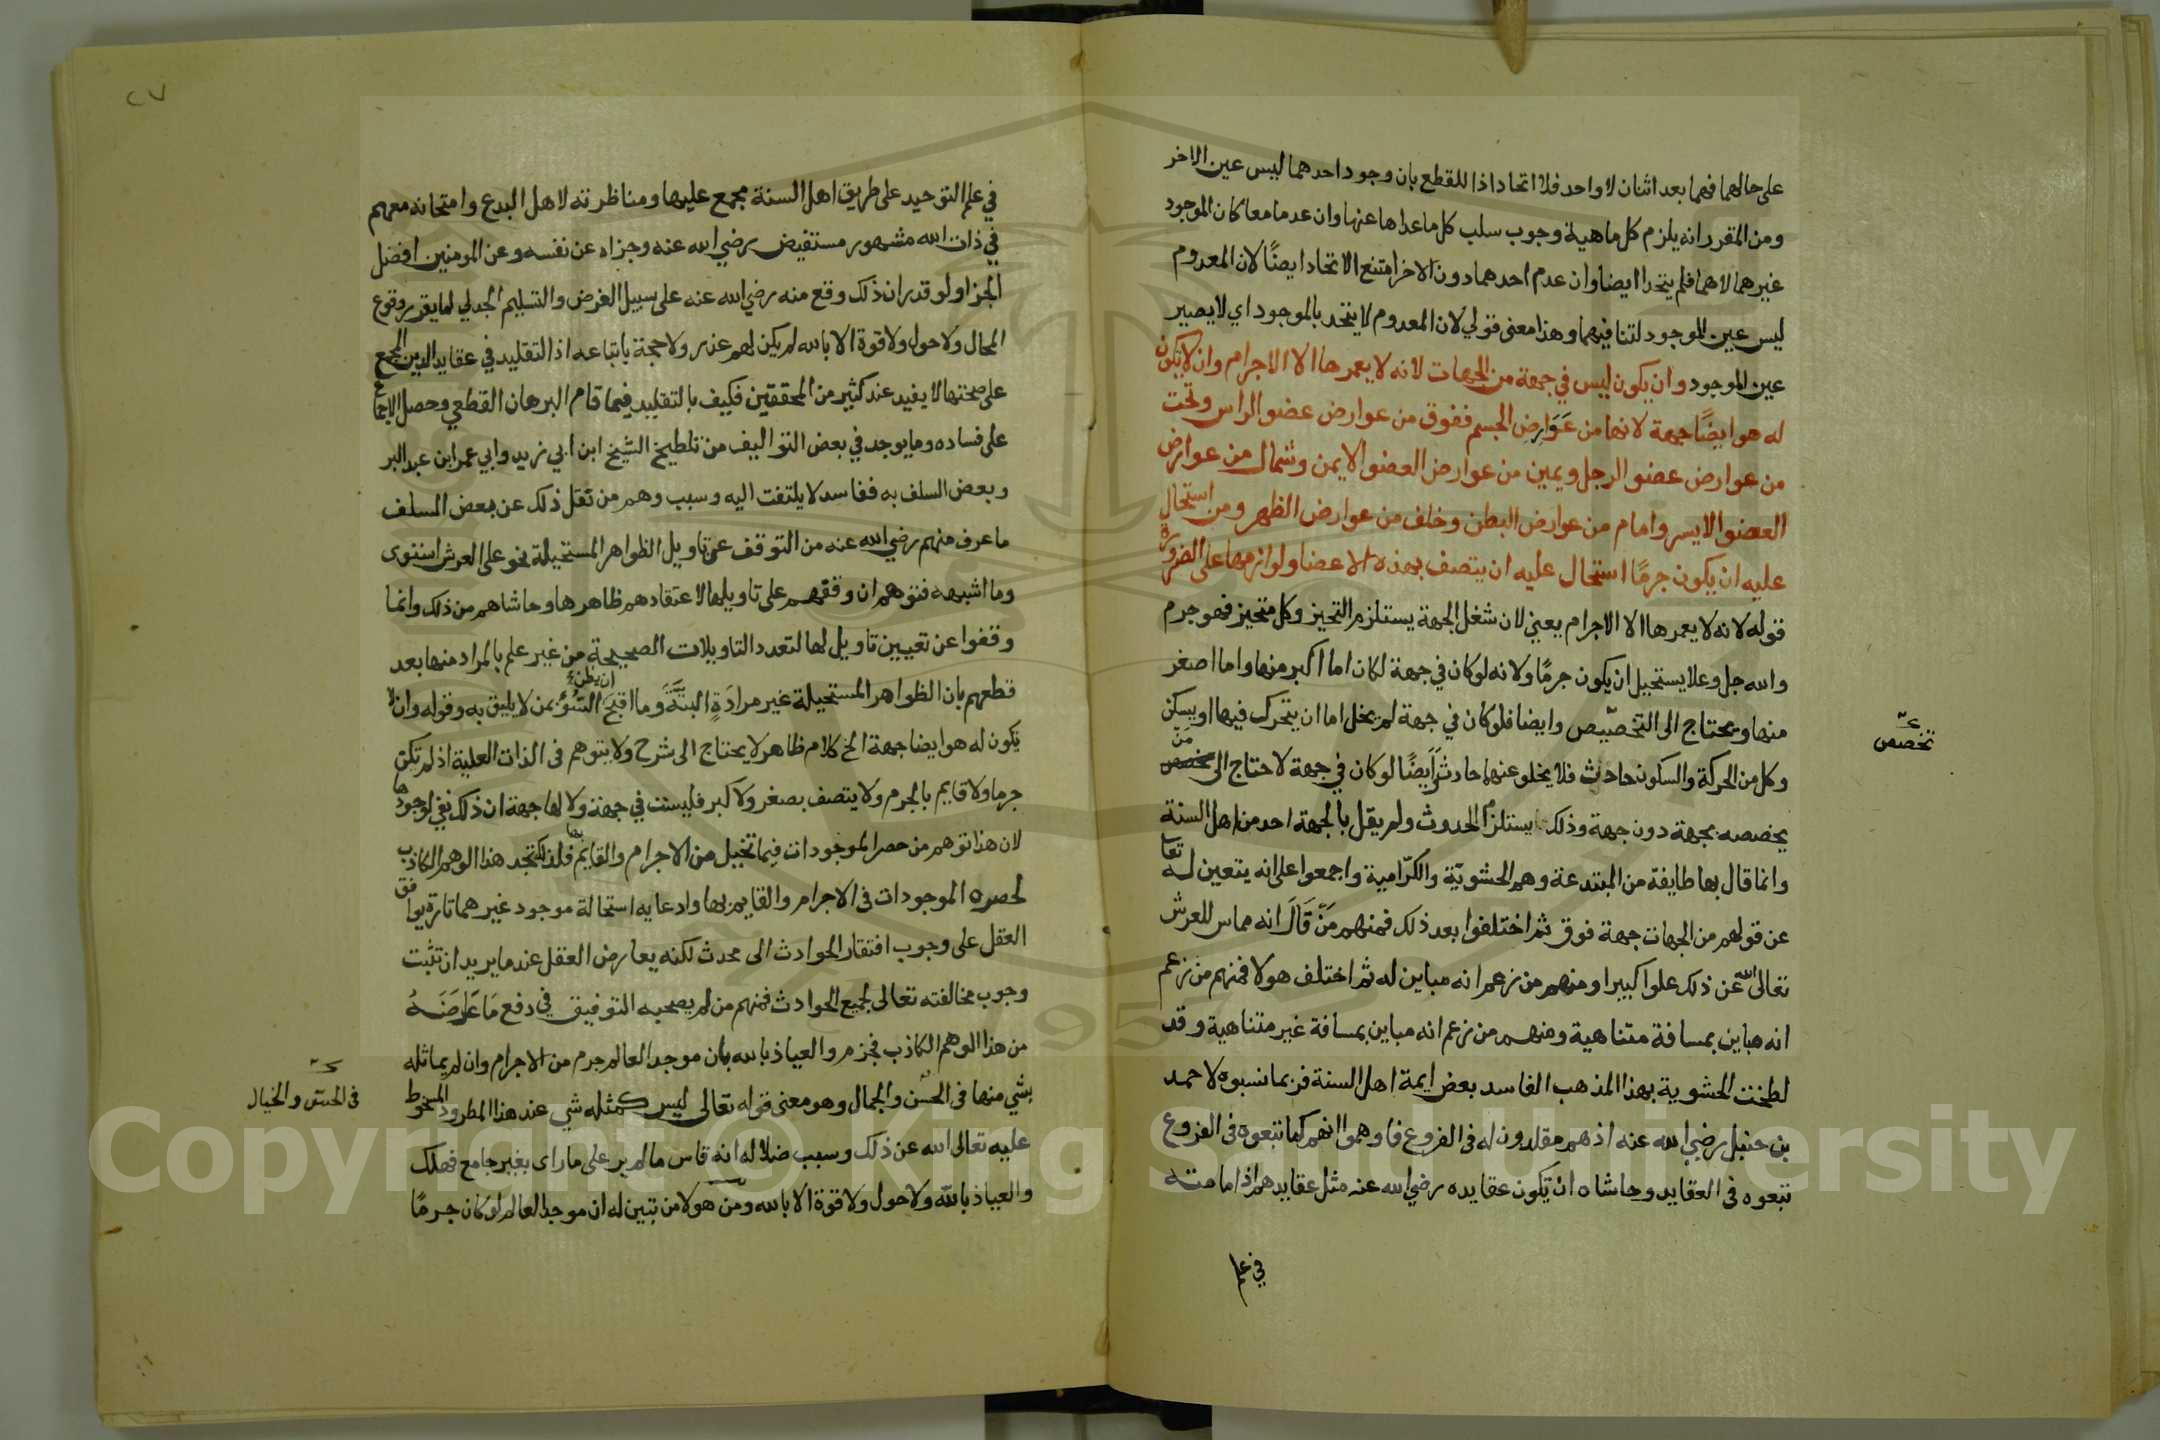 على حالهما فهما بعد اثنان لا واحد فلا اتحاد اذا للقطع بان وجود احدهما ليس عين الاخر
ومن المقرر انه يلزم كل ماهية وجوب سلب كل ما عداها عنها وان عدما معا كان الموجود
غيرهما لا هما فلم يتحدا ايضا وان عدم احدهما دون الاخر امتنع الاتحاد ايضًا لان المعدوم
ليس عين الموجود لتنافيهما وهذا معنى قولي لان المعدوم لا يتحد بالموجود اي لا يصير
عين الموجود وان يكون ليس في جهة من الجهات لانه لا يعمرها الا الاجرام وان لا يكون
له هو ايضًا جهة لانها من عَوَارِض الجسم ففوق من عوارض عضو الراس وتحت
من عوارض عضو الرجل ويمين من عوارض العضو الايمن وشمال من عوارض
العضو الايسر وامام من عوارض البطن وخلف من عوارض الظهر ومن استحال
عليه ان يكون جرمًا استحال عليه ان يتصف بهذه الاعضا ولوازمها على الضرورة
قوله لانه لا يعمرها الا الاجرام يعني لان شغل الجهة يستلزم التحيز وكل متحيز فهو جرم
والله جل وعلا يستحيل ان يكون جرمًا ولانه لو كان في جهة لكان اما اكبر منها واما اصغر
منها ويحتاج الى التخصيص وايضا فلو كان في جهة لم يخل اما ان يتحرك فيها او يسكن
وكل من الحركة والسكون حادث فلا يخلو عنهما حادث وَاَيضًا لو كان في جهة لاحتاج الى مخصص مَن
تخصص
يخصصه بجهة دون جهة وذلك يستلزم الحدوث ولم يقل بالجهة احد من اهل السنة
وانما قال بها طايفة من المبتدعة وهم الحشويّة والكرّامية واجمعوا على انه يتعين له تعا
عن قولهم من الجهات جهة فوق ثم اختلفوا بعد ذلك فمنهم مَنْ قَالَ انه مماس للعرش
تعالى الله عن ذلك علوا كبيرا ومنهم من زعم انه مباين له ثم اختلف هولا فمنهم من زعم
انه مباين بمسافة متناهية ومنهم من زعم انه مباين بمسافة غير متناهية وقد
لطخت الحشوية بهذا المذهب الفاسد بعض ايمة اهل السنة فربما نسبوه لاحمد
بن حنبل رضي الله عنه اذ هم مقلدون له في الفروع فاوهموا انهم كما تبعوه في الفروع
تبعوه في العقايد وحاشاه ان تكون عقايده رضي الله عنه مثل عقايدهم اذ امامته
في علم
٢٧
في علم التوحيد على طريق اهل السنة مجمع عليها ومناظرته لاهل البدع وامتحانه معهم
في ذات الله مشهور مستفيض رضي الله عنه وجزاه عن نفسه وعن المومنين افضل
الجزا ولو قدر ان ذلك وقع منه رضي الله عنه على سبيل الفرض والتسليم الجدلي لما يقرر وقوع
المحال ولا حول ولا قوة الا بالله لم يكن لهم عذر ولا حجة باتباعه اذ التقليد في عقايد الدين المجمع
على صحتها لا يفيد عند كثير من المحققين فكيف بالتقليد فيما قام البرهان القطعي وحصل الاجماع
على فساده وما يوجد في بعض التواليف من تلطيخ الشيخ ابن ابي زيد وابي عمر ابن عبد البر
وبعض السلف به ففاسد لا يلتفت اليه وسبب وهم من نقل ذلك عن بعض السلف
ما عرف منهم رضي الله عنه من التوقف عن تاويل الظواهر المستحيلة نحو على العرش استوى
وما اشبهه فتوهم ان وقفهم على تاويلها لاعتقادهم ظاهرها وحاشاهم من ذلك وانما
وقفوا عن تعيين تاويل لها لتعدد التاويلات الصحيحة من غير علم بالمراد منها بعد
قطعهم بان الظواهر المستحيلة غير مرادَةٍ البتَّةَ وما اقبحَ ان يظن السُّوْء بمن لا يليق به وقوله وان لا
يكون له هو ايضا جهة الخ كلام ظاهر لا يحتاج الى شرح ولا يتوهم في الذات العلية اذ لم تكن
جرما ولا قايم بالجرم ولا يتصف بصغر ولا كبر فليست في جهة ولا لها جهة ان ذلك نفي لوجودها
لان هذا توهم من حصر الموجودات فيما تخيل من الاجرام والقايم بها فلذلك تجد هذا الوهم الكاذب
لحصره الموجودات في الاجرام والقايم بها وادعايه استحالة موجود غيرهما تارة يوافق
العقل على وجوب افتقار الحوادث الى محدث لكنه يعارض العقل عند ما يريد ان تثبت
وجوب مخالفته تعالى لجميع الحوادث فمنهم من لم يصحبه التوفيق في دفع مَا عَارَضَهُ
من هذا الوهم الكاذب فجزم والعياذ بالله بان موجد العالم جرم من الاجرام وان لم يماثله
بشي منها في الحسن والجمال وهو معنى قوله تعالى ليس كمثله شي عند هذا المطرود المسخوط
في الحسّ والخيال
عليه تعالى الله عن ذلك وسبب ضلاله انه قاس ما لم ير على ما راى بغير جامع فهلك
والعياذ بالله ولا حول ولا قوة الا بالله ومن هولا من تبين له ان موجد العالم لو كان جرمًا
Copyright © King Saud University